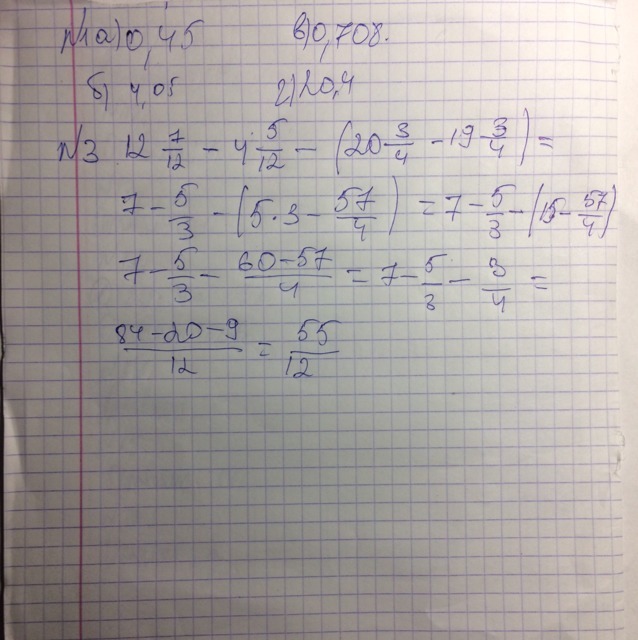 №1 а) 0,45 в) 0,708.
б) 4,05 г) 20,4
№3 12 7/12 - 4 5/12 - (20 3/4 - 19 3/4) =
7 - 5/3 - (5·3 - 57/4) = 7 - 5/3 - (15 - 57/4)
7 - 5/3 - (60-57)/4 = 7 - 5/3 - 3/4 =
(84-20-9)/12 = 55/12